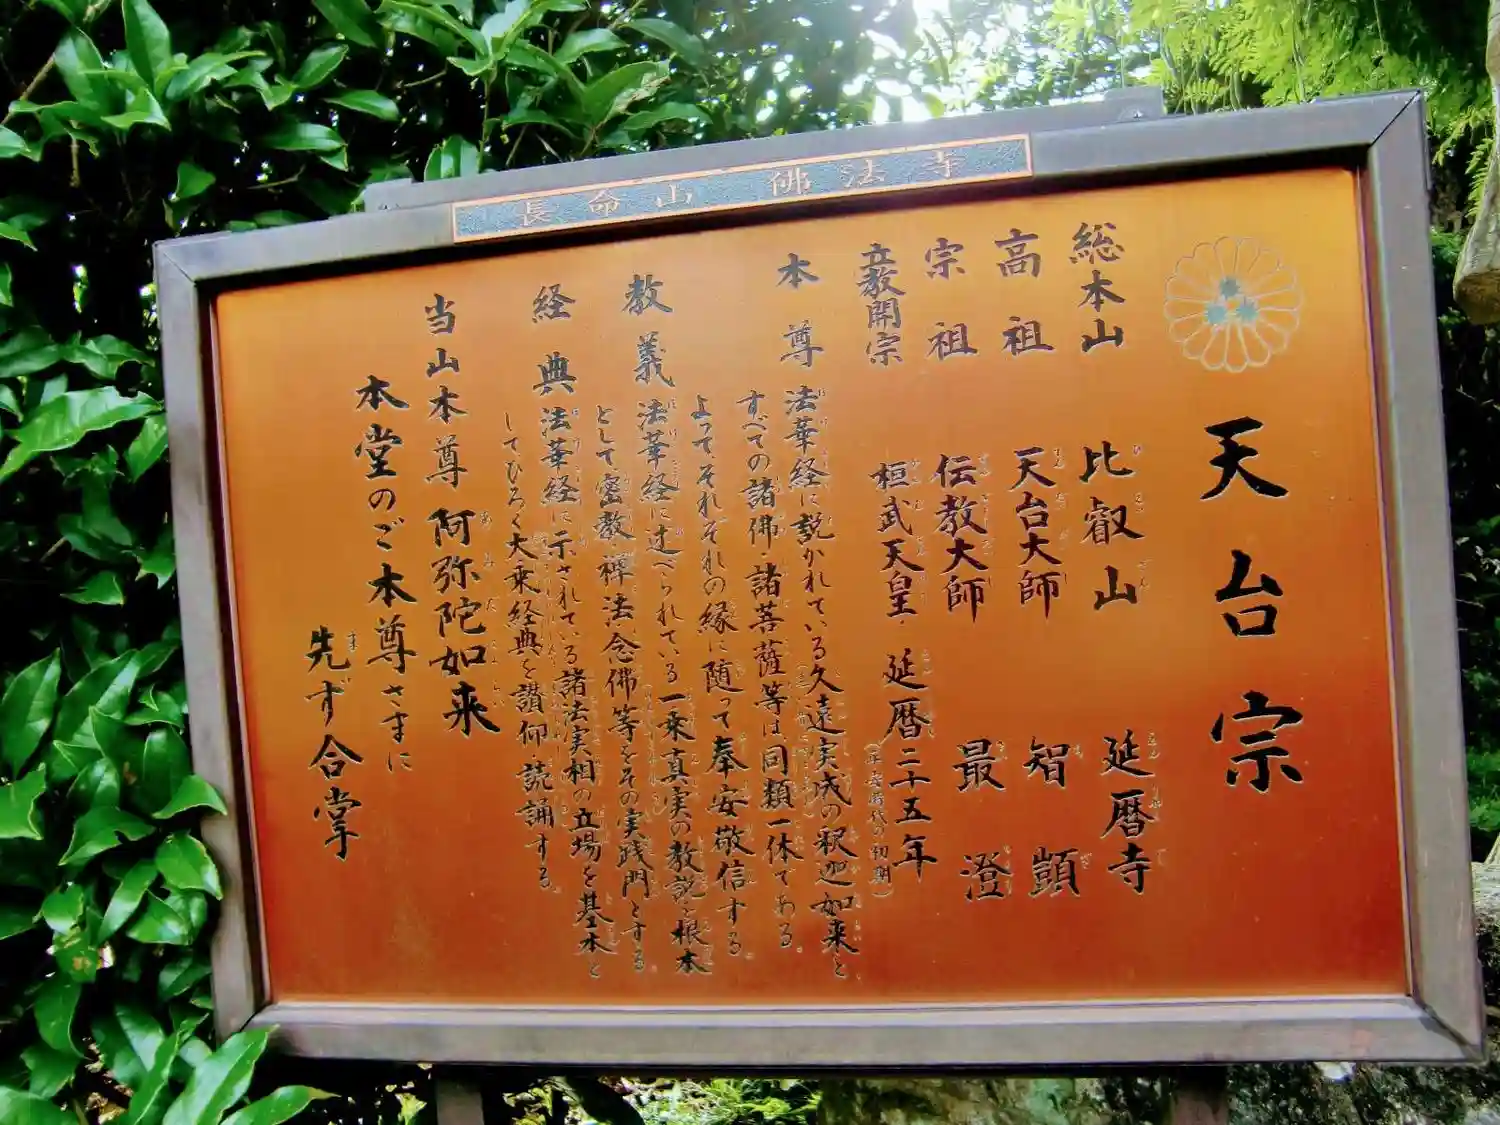 長命山 佛法寺
天台宗
総本山 比叡山 延暦寺
高祖 天台大師 智顗
宗祖 伝教大師 最澄
立教開宗 桓武天皇・延暦二十五年
(平安時代の初期)
本尊 法華経に説かれている久遠実成の釈迦如来と
すべての諸佛・諸菩薩等は同類一体である。
よってそれぞれの縁に随って奉安敬信する。
教義 法華経に述べられている一乗真実の教説を根本
として密教・禅法・念佛等をその実践門とする。
経典 法華経に示されている諸法実相の立場を基本と
してひろく大乗経典を讃仰読誦する。
当山本尊 阿弥陀如来
本堂のご本尊さまに
先ず合掌